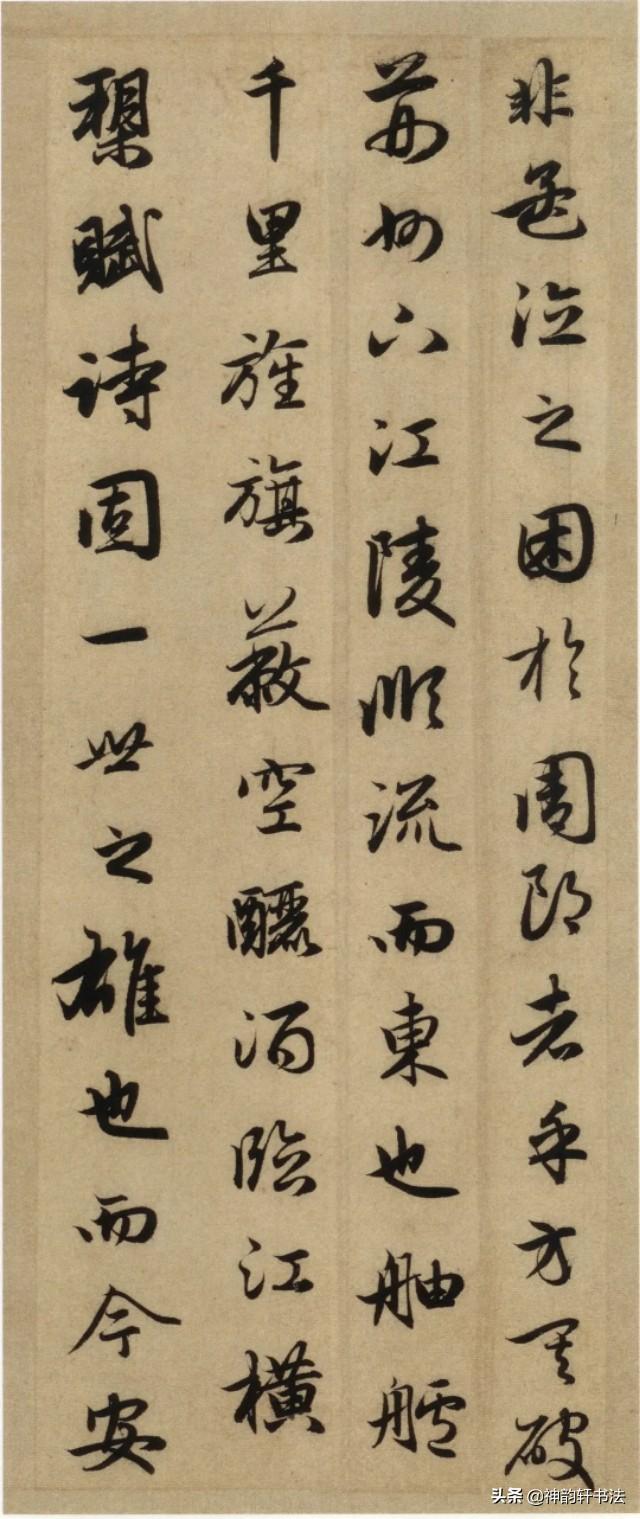 非孟德之困於周郎者乎方其破
荊州下江陵順流而東也舳艫
千里旌旗蔽空釃酒臨江橫
槊賦詩固一世之雄也而今安
头条 @神韵轩书法